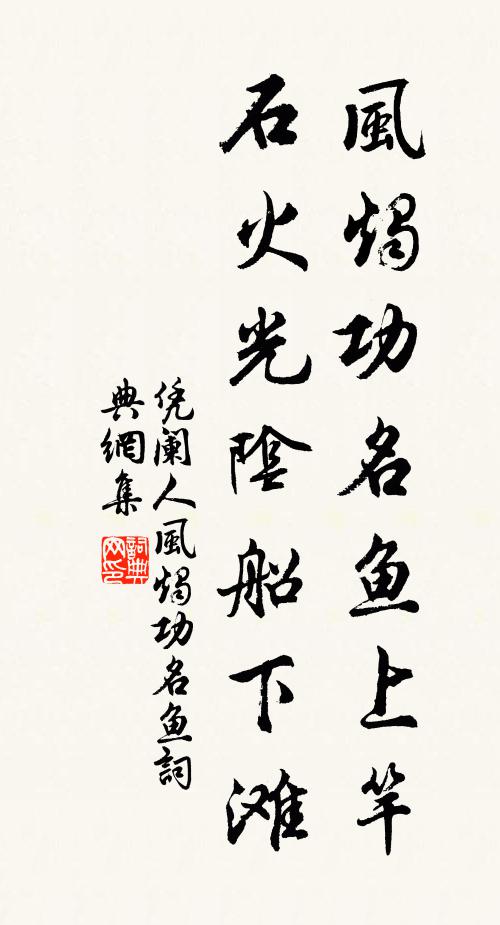 風燭功名魚上竿
石火光陰船下滩
凭阑人風燭功名魚詞
典網集
詞典網印